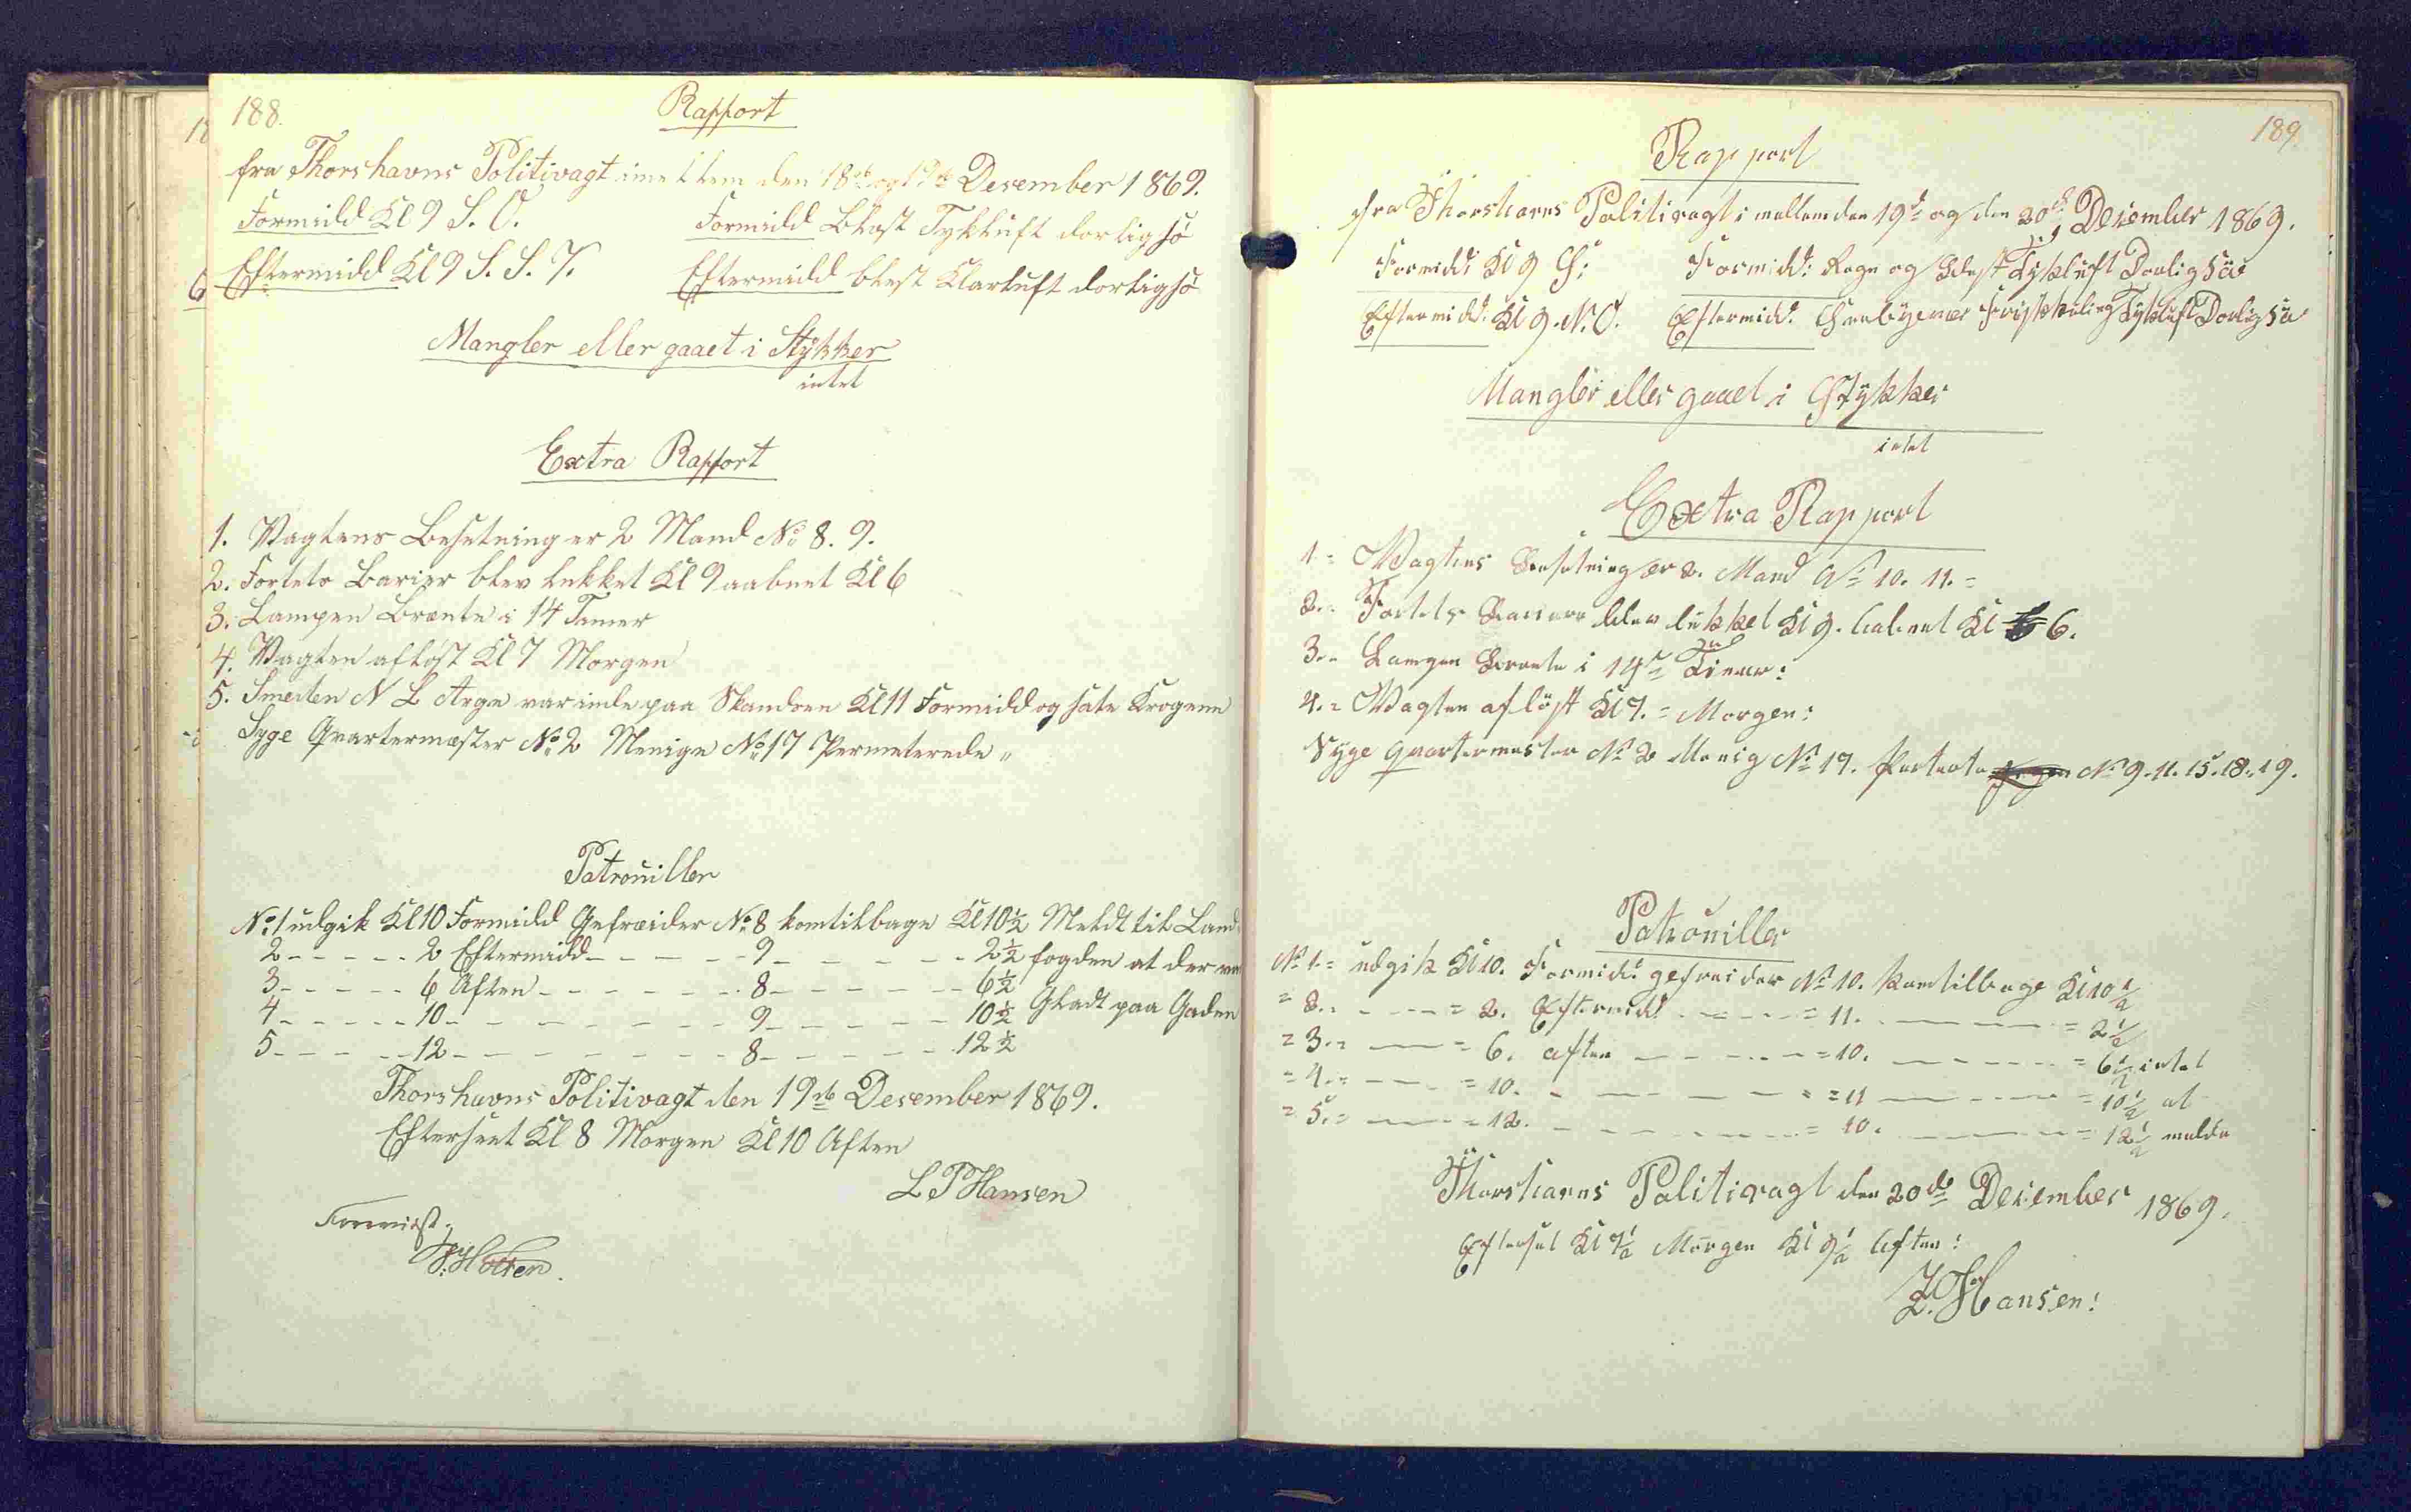 188.
Rapport
fra Thorshavns Politivagt imellem den 18de og 19de Desember 1869.
Formidd Kl 9 S. O. Formidd blæst Tykluft dorlig sö
Eftermidd Kl 9 S. S. V. Eftermidd blæst Klarluft dorlig sö
Mangler eller gaaet i Stÿkker
intet
Extra Rapport
1. Vagtens Besetning er 2 Mand No 8. 9.
2. Fortets Barier blev lukket Kl 9 aabnet Kl 6
3. Lampen Brænte i 14 Timer
4. Vagten aflöst Kl 7 Morgen
5. Smeden N L Arge var inde paa Skandsen Kl 11 Formidd og sate Krogene
Syge Qvartermester No 2 Menige No 17 Permeterede "
Patrouiller
No 1 udgik Kl 10 Formidd Gefreider No 8 kom tilbage Kl 10½ Meldt til Land
2 - - - - - 2 Eftermidd - - - - - 9 - - - - - 2½ fogden at der var
3 - - - - - 6 Aften - - - - - 8 - - - - - 6½
4 - - - - - 10 - - - - - 9 - - - - - 10½ Gladt paa Gaden
5 - - - - - 12 - - - - - 8 - - - - - 12½
Thorshavns Politivagt den 19de Desember 1869.
Efterseet Kl 8 Morgen Kl 10 Aften
L P Hansen
Forevist
189.
Rapport
fra Thorshavns Politivagt i mellem den 19de og den 20de Desember 1869.
Formidd: Kl 9 S: Formidd: Regn og Blæst Tykluft Dorlig Sö
Eftermidd: Kl 9. N. O. Eftermidd: Sneebyer Friskkuling Tykluft Dorlig Sö
Mangler eller gaaet i Stykker
intet
Extra Rapport
1 = Vagtens Besetning er 2. Mand No 10. 11. =
2. = Fortets Bariere blev lukket Kl 9. Aabnet Kl 6.
3. = Lampen Brænte i 14 Timer:
4. = Vagten aflöst Kl 7. = Morgen:
Syge qvartermester No 2 Menig No 17. No 9. 11. 15. 18. 19.
Patrouiller
No 1. = udgik Kl 10. Formidd: gefreider No 10. Kom tilbage Kl 10½
= 2. - - - = 2. Eftermidd - - - = 11. - - - = 2½
= 3. = - - = 6. aften - - - = 10. - - - = 6½ intet
= 4. = - - = 10. - - - = 11 - - - = 10½ at
= 5. = - - = 12. - - - = 10. - - - = 12½ melde
Thorshavns Politivagt den 20de Desember 1869.
Efterset Kl 7½ Morgen Kl 9½ Aften:
Z. Hansen: